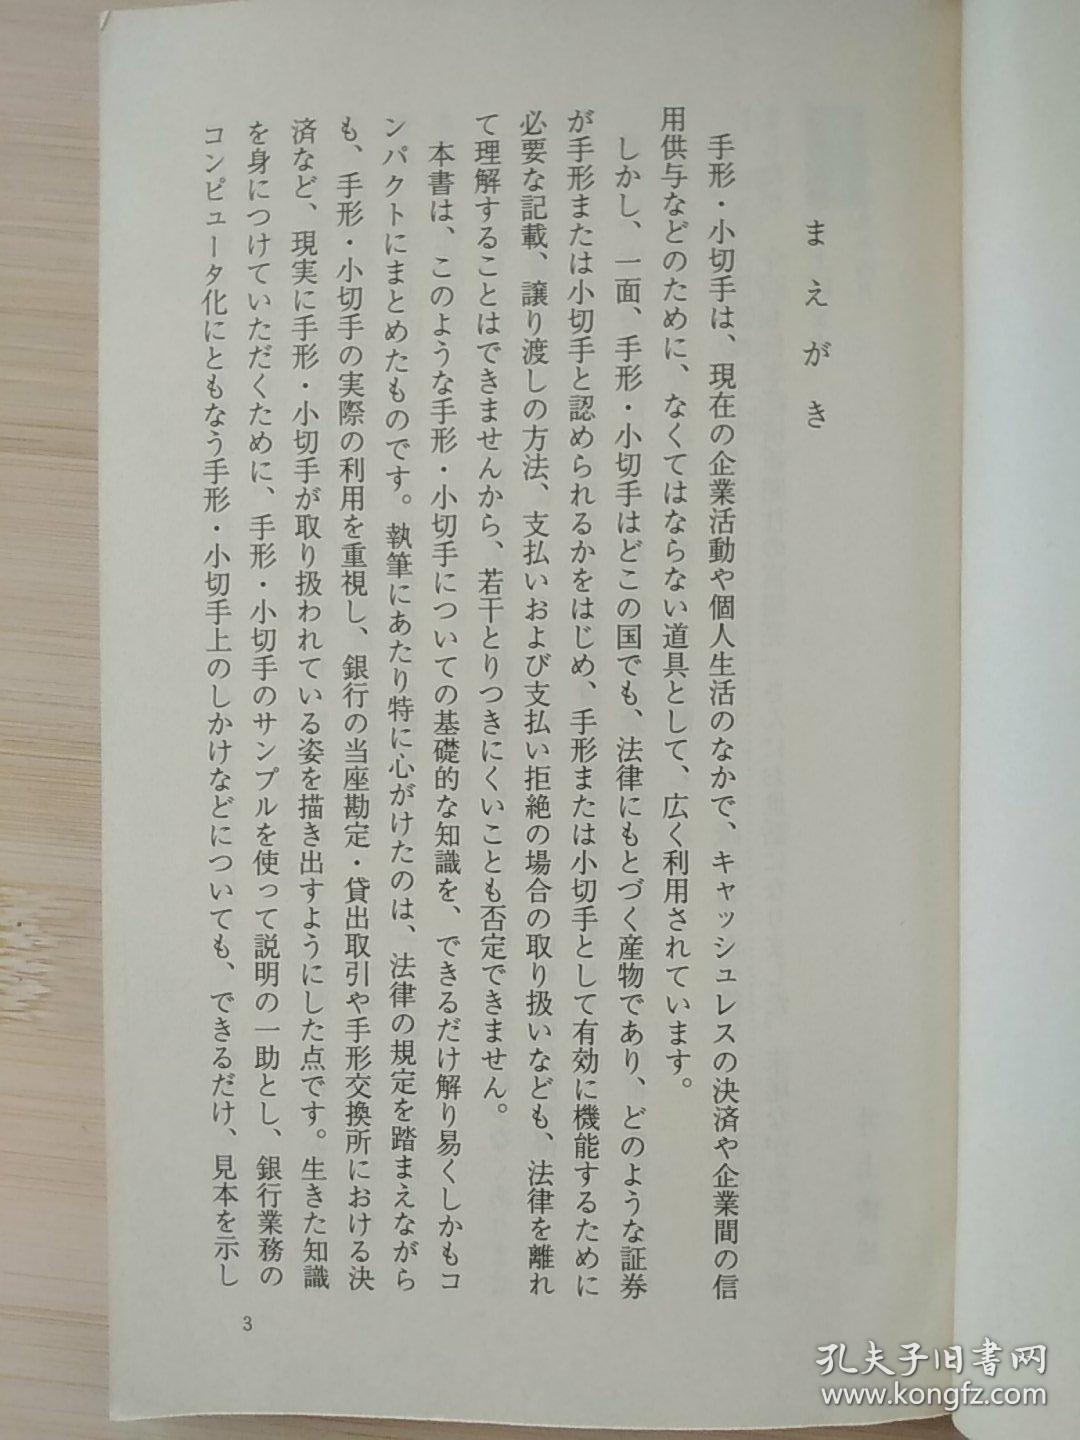 まえがき
手形・小切手は、現在の企業活動や個人生活のなかで、キャッシュレスの決済や企業間の信
用供与などのために、なくてはならない道具として、広く利用されています。
しかし、一面、手形・小切手はどこの国でも、法律にもとづく産物であり、どのような証券
が手形または小切手と認められるかをはじめ、手形または小切手として有効に機能するために
必要な記載、譲り渡しの方法、支払いおよび支払い拒絶の場合の取り扱いなども、法律を離れ
て理解することはできませんから、若干とりつきにくいことも否定できません。
本書は、このような手形・小切手についての基礎的な知識を、できるだけ解り易くしかもコ
ンパクトにまとめたものです。執筆にあたり特に心がけたのは、法律の規定を踏まえながら
も、手形・小切手の実際の利用を重視し、銀行の当座勘定・貸出取引や手形交換所における決
済など、現実に手形・小切手が取り扱われている姿を描き出すようにした点です。生きた知識
を身につけていただくために、手形・小切手のサンプルを使って説明の一助とし、銀行業務の
コンピュータ化にともなう手形・小切手上のしかけなどについても、できるだけ、見本を示し
3
孔夫子旧书网
www.kongfz.com